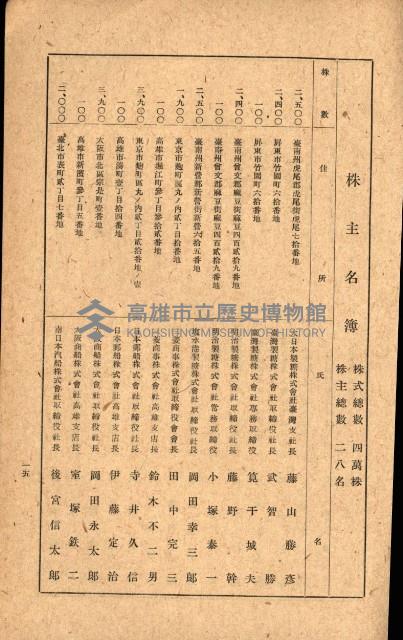 株主名簿
株式總數 四萬株
株主總數 二八名
株數 住所 氏名
二、五〇〇 臺南州虎尾郡虎尾街虎尾七拾番地 大日本製糖株式會社臺灣支社長 藤山勝彥
二、四〇〇 屏東市竹園町六拾番地 臺灣製糖株式會社取締役社長 武智勝
一〇〇 屏東市竹園町六拾番地 臺灣製糖株式會社專務取締役 筧干城夫
二、四〇〇 臺南州曾文郡麻豆街麻豆四百貳拾九番地 明治製糖株式會社取締役社長 藤野幹
一〇〇 臺南州曾文郡麻豆街麻豆四百貳拾九番地 明治製糖株式會社常務取締役 小塚泰一
二、五〇〇 臺南州新營郡新營街新營六拾五番地 鹽水港製糖株式會社取締役社長 岡田幸三郎
一、九〇〇 東京市麴町區丸ノ內貳丁目拾番地 三菱商事株式會社取締役會長 田中完三
一〇〇 高雄市堀江町參丁目參拾貳番地 三菱商事株式會社高雄支店長 鈴木不二男
三、九〇〇 東京市麴町區丸ノ內貳丁目貳拾番地ノ壹 日本郵船株式會社取締役社長 寺井久信
一〇〇 高雄市湊町壹丁目拾四番地 日本郵船株式會社高雄支店長 伊藤定治
三、九〇〇 大阪市北區宗是町壹番地 大阪商船株式會社取締役社長 岡田永太郎
一〇〇 高雄市新濱町參丁目五番地 大阪商船株式會社高雄支店長 室塚鉄二
二、〇〇〇 臺北市表町貳丁目七番地 南日本汽船株式會社取締役社長 後宮信太郎
一五
高雄市立歷史博物館
KAOHSIUNG MUSEUM OF HISTORY